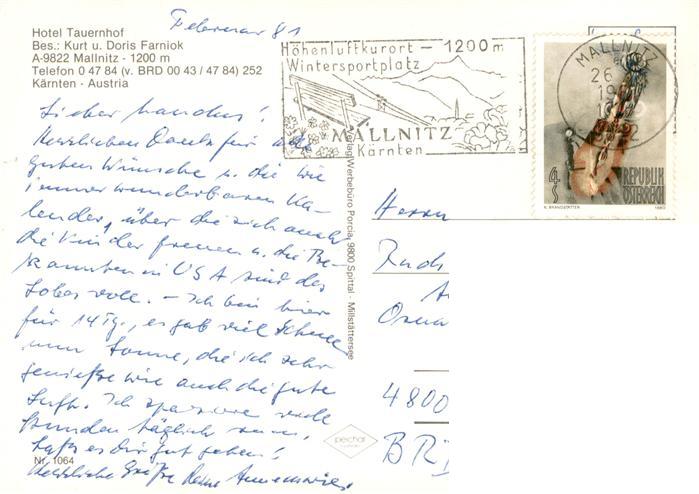 Februar 81
Hotel Tauernhof
Bes.: Kurt u. Doris Farniok
A-9822 Mallnitz - 1200 m
Telefon 0 47 84 (v. BRD 00 43 / 47 84) 252
Kärnten - Austria
Höhenluftkurort - 1200 m
Wintersportplatz
MALLNITZ
Kärnten
MALLNITZ
26
9822
4 S
REPUBLIK
ÖSTERREICH
1980
Lieber
Herzlichen Dank für all
guten Wünsche u. die wie
immer wunderbaren Ka-
lender, über die sich auch
die Kinder freuen u. die Be-
kannten in USA sind des
Lobes voll. - Ich bin hier
für 14 Tg., es gab viel Schnee
nun Sonne, die ich sehr
genieße wie auch die gute
Luft. Ich spaziere viele
Stunden täglich rum.
Laß es dir gut gehen!
Herzliche Grüße Deine
Nr. 1064
Werbebüro Porcia, 9800 Spittal - Millstättersee
pechar
Herrn
4800